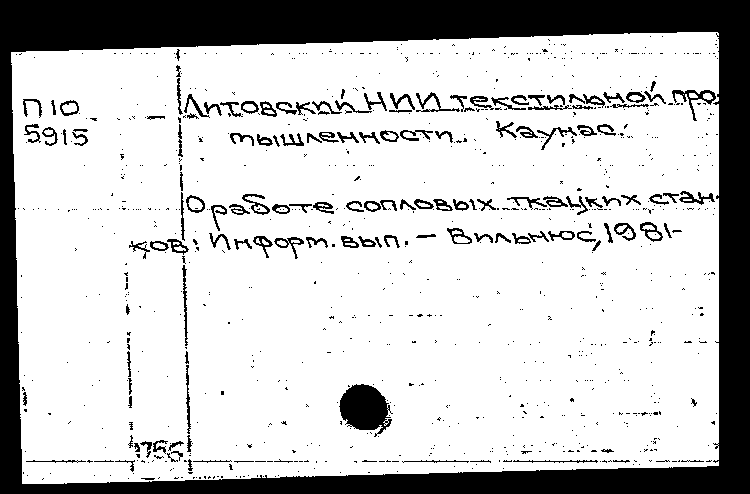 П10 Литовский НИИ текстильной про
5915 мышленности. Каунас.
О работе сопловых ткацких стан-
ков: Информ. вып. – Вильнюс, 1981-